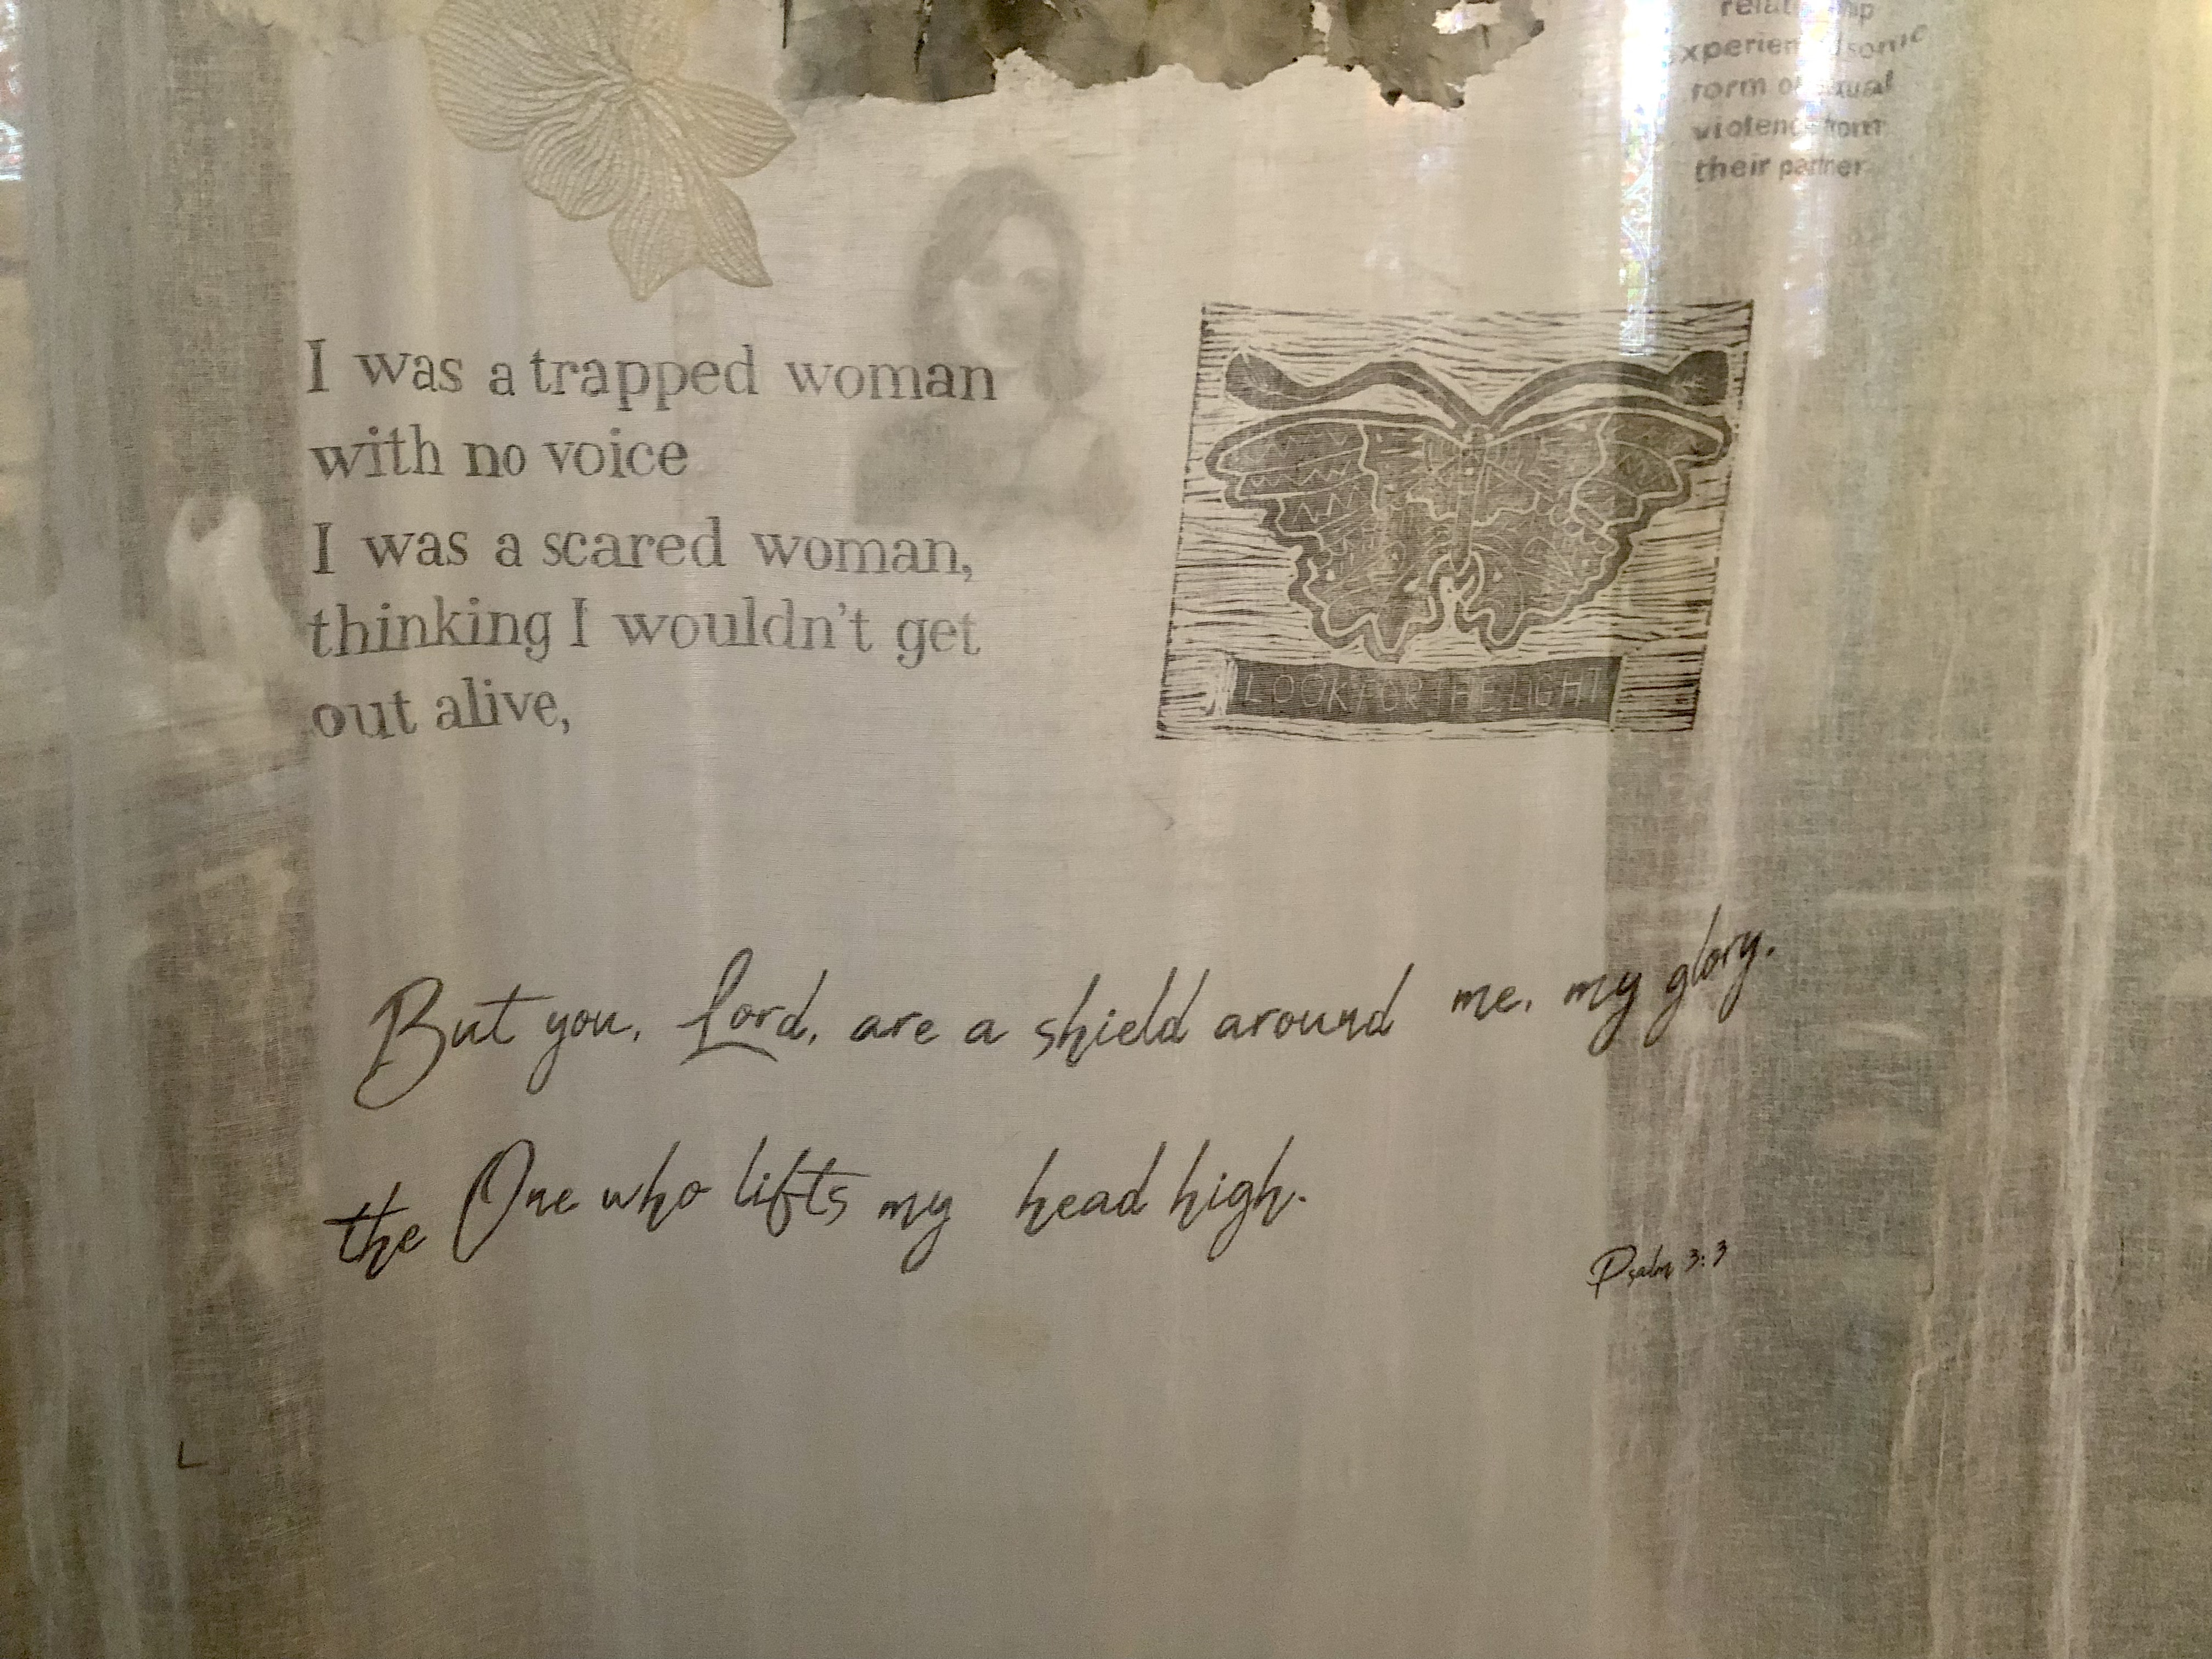 relationship
experienced some
form of sexual
violence from
their partner
I was a trapped woman
with no voice
I was a scared woman,
thinking I wouldn't get
out alive,
LOOK FOR THE LIGHT
But you, Lord, are a shield around me, my glory.
the One who lifts my head high.
Psalm 3:3